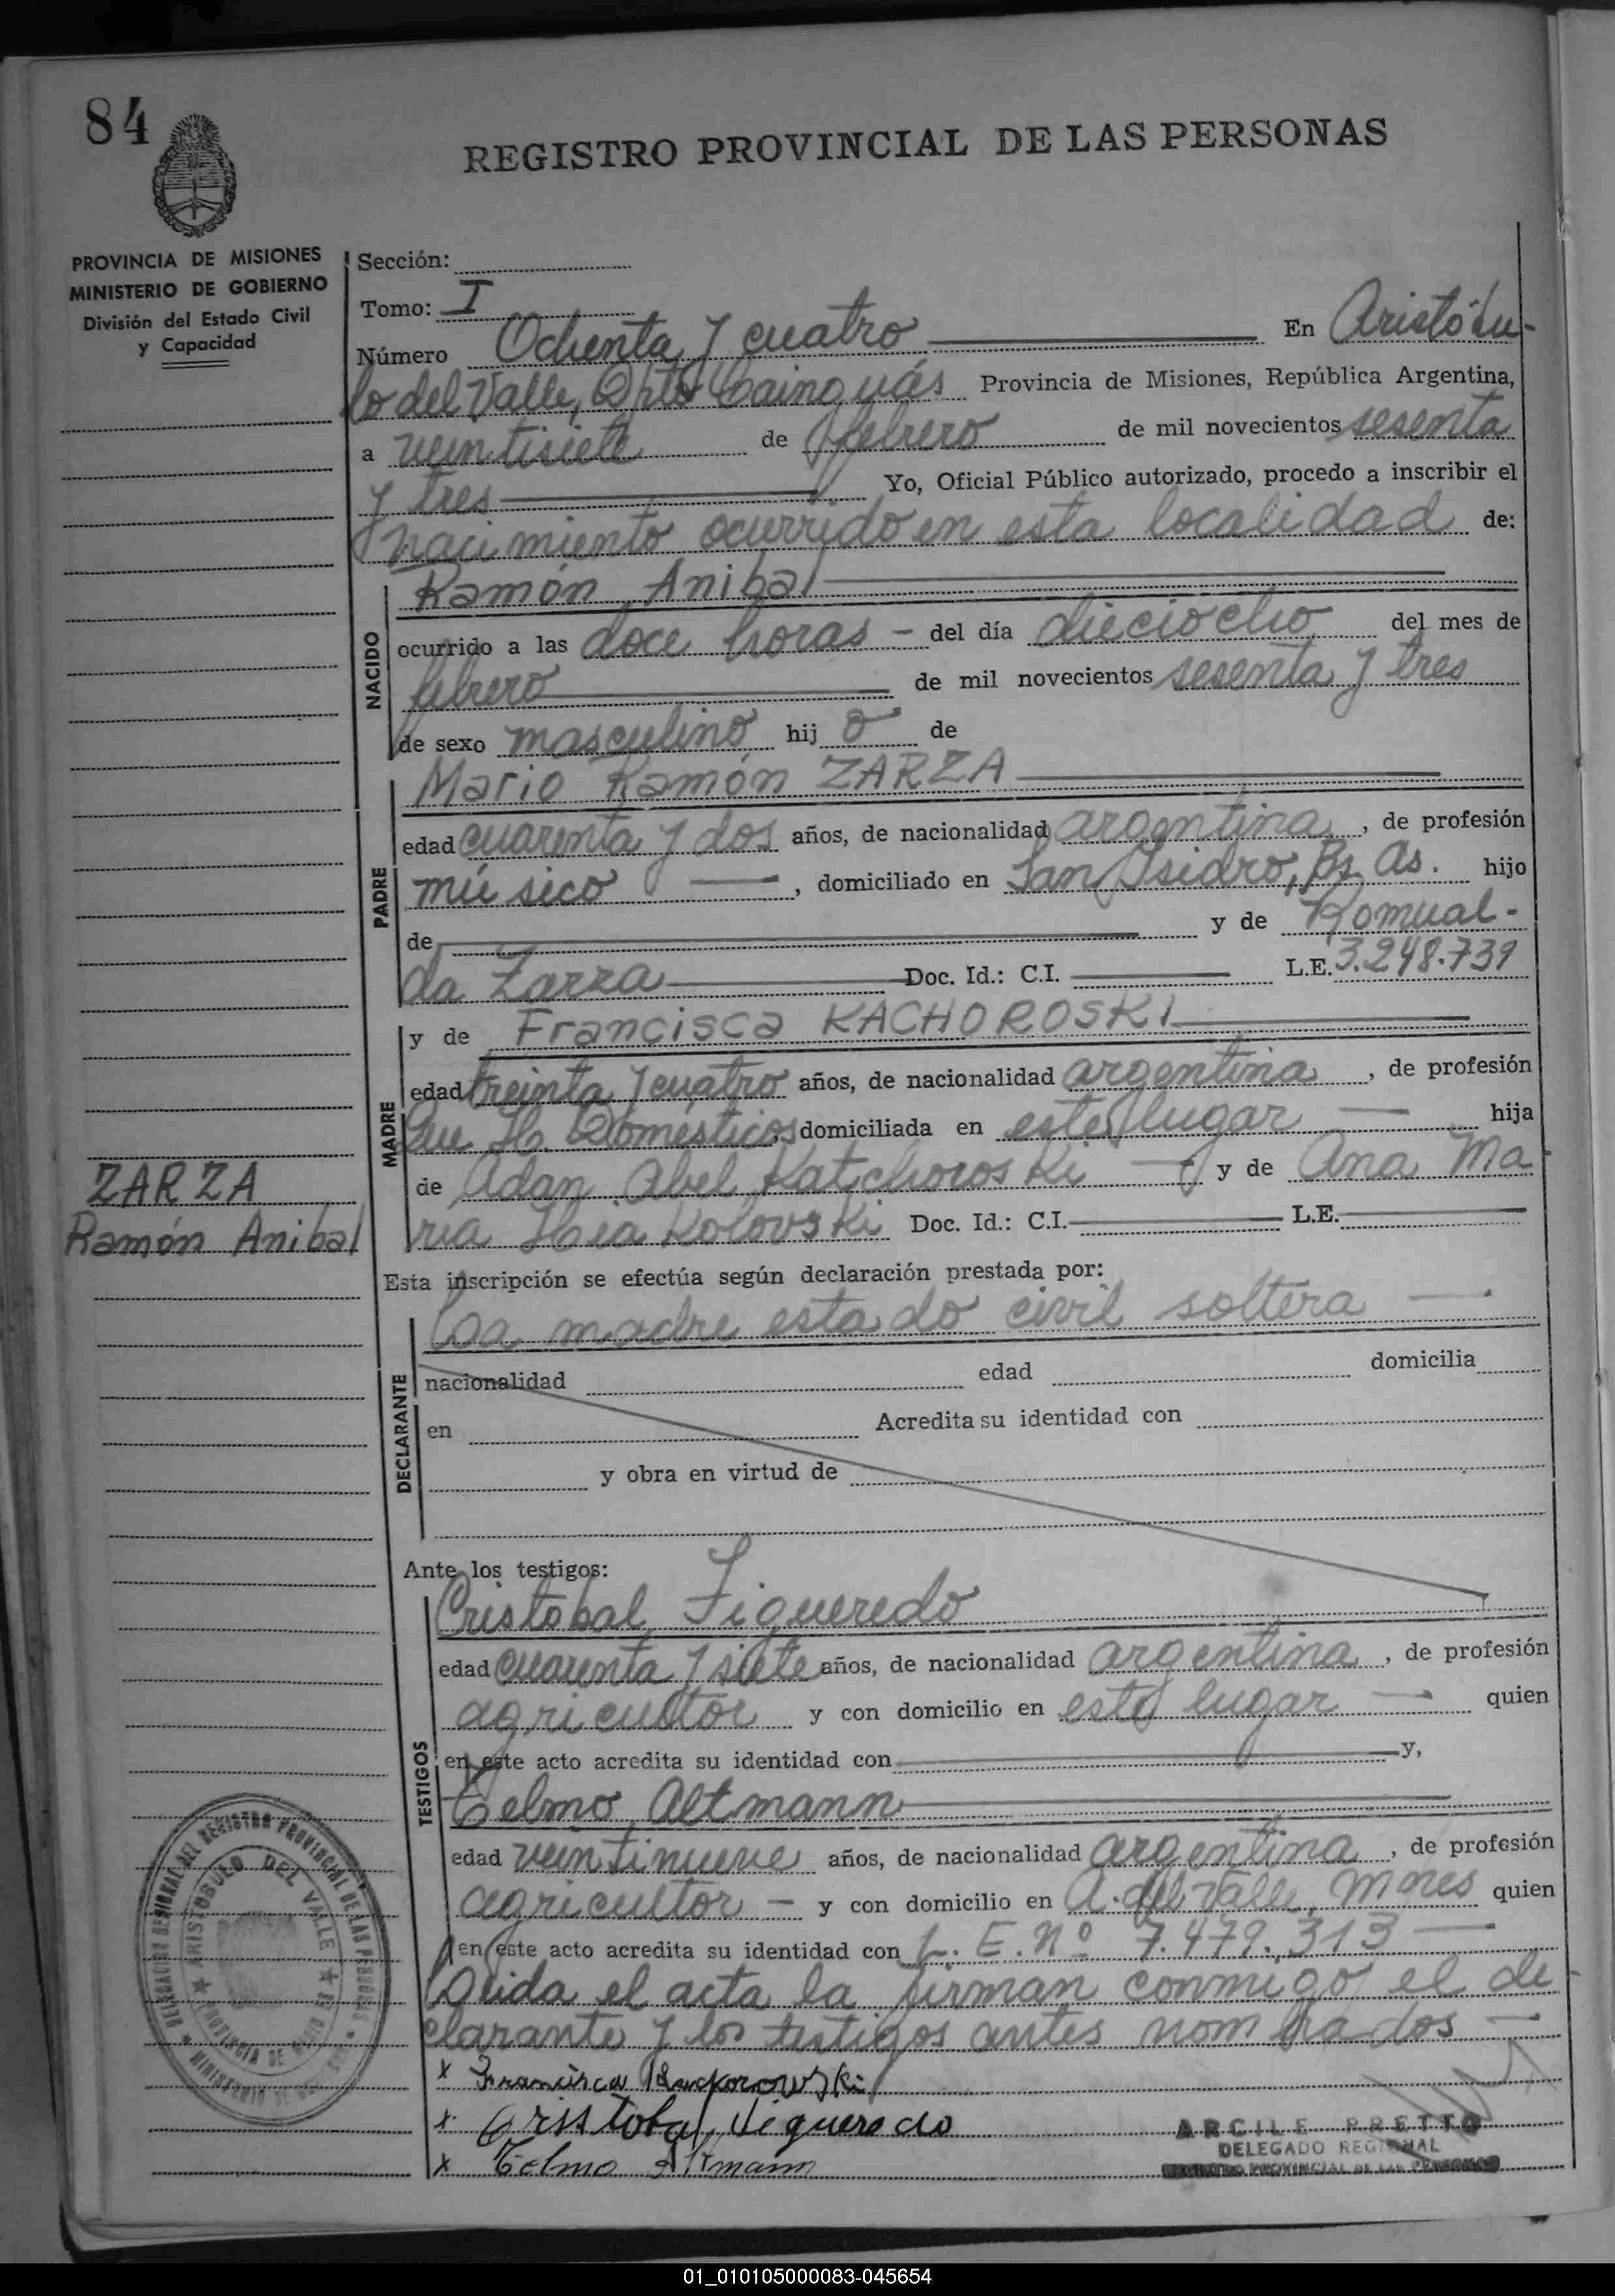 84
REGISTRO PROVINCIAL DE LAS PERSONAS
PROVINCIA DE MISIONES
MINISTERIO DE GOBIERNO
División del Estado Civil
y Capacidad
Sección:
Tomo: I
Número Ochenta y cuatro En Aristóbu-
lo del Valle, Dpto Cainguás Provincia de Misiones, República Argentina,
a veintisiete de febrero de mil novecientos sesenta
y tres Yo, Oficial Público autorizado, procedo a inscribir el
nacimiento ocurrido en esta localidad de:
NACIDO
Ramón Anibal
ocurrido a las doce horas - del día dieciocho del mes de
febrero de mil novecientos sesenta y tres
de sexo masculino hijo de
PADRE
Mario Ramón ZARZA
edad cuarenta y dos años, de nacionalidad argentina, de profesión
músico —, domiciliado en San Isidro, Bs. As. hijo
de y de Romual-
da Zarza Doc. Id.: C.I. L.E. 3.248.739
MADRE
y de Francisca KACHOROSKI
edad treinta y cuatro años, de nacionalidad argentina, de profesión
Que H. Domésticos, domiciliada en este lugar — hija
de Adan Abel Katchoroski y de Ana Ma
ria Kolovski Doc. Id.: C.I. L.E.
ZARZA
Ramón Anibal
Esta inscripción se efectúa según declaración prestada por:
DECLARANTE
La madre estado civil soltera —
nacionalidad edad domicilia
en Acredita su identidad con
y obra en virtud de
Ante los testigos:
TESTIGOS
Cristobal Figueredo
edad cuarenta y siete años, de nacionalidad argentina, de profesión
agricultor y con domicilio en este lugar — quien
en este acto acredita su identidad con y,
Telmo Altmann
edad veintinueve años, de nacionalidad argentina, de profesión
agricultor - y con domicilio en A. del Valle, Mnes quien
en este acto acredita su identidad con L. E. Nº 7.479.313 —
Leida el acta la firman conmigo el de-
clarante y los testigos antes nombrados —
x Francisca
x Cristobal Figueredo
x Telmo Altmann
ARCILE PRETTO
DELEGADO REGIONAL
REGISTRO PROVINCIAL DE LAS PERSONAS
DELEGACIÓN REGIONAL DEL REGISTRO PROVINCIAL DE LAS PERSONAS
ARISTOBULO DEL VALLE
01_010105000083-045654